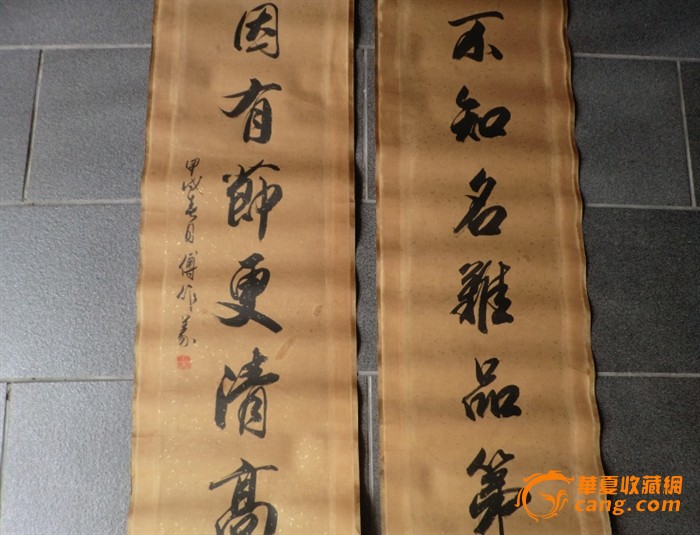 不知名難品第
因有節更清高
甲戌春月傅作義
華夏收藏網
cang.com